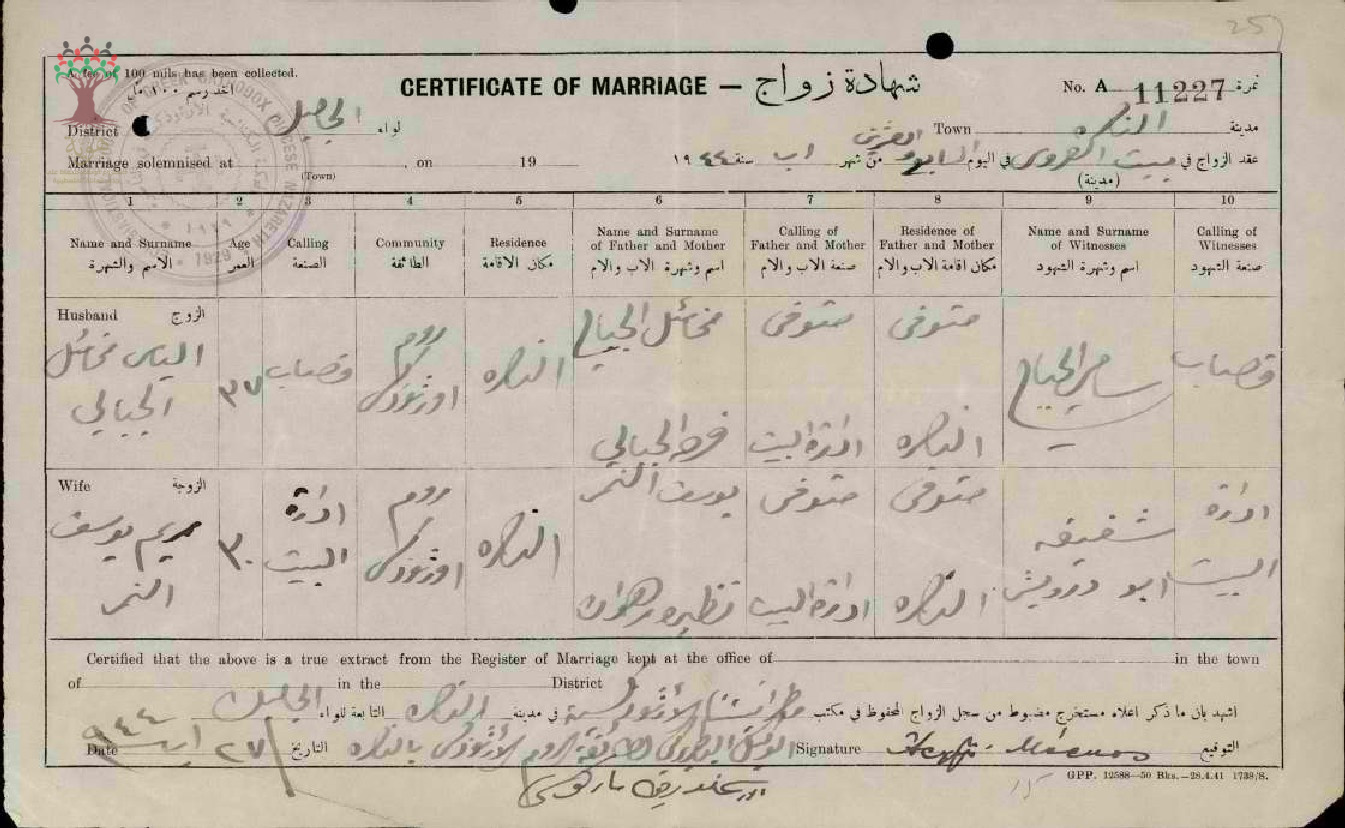 A fee of 100 mils has been collected.
اخذ رسم ١٠٠ مل
CERTIFICATE OF MARRIAGE — شهادة زواج
No. A 11227 نمرة
District الجليل لواء
Town الناصره مدينة
Marriage solemnised at , on 19
(Town)
عقد الزواج في بيت العروس في اليوم السابع والعشرين من شهر اب سنة ١٩٤٤
(مدينة)
1 2 3 4 5 6 7 8 9 10
Name and Surname
الاسم والشهرة
Age
العمر
Calling
الصنعة
Community
الطائفة
Residence
مكان الاقامة
Name and Surname
of Father and Mother
اسم وشهرة الاب والام
Calling of
Father and Mother
صنعة الاب والام
Residence of
Father and Mother
مكان اقامة الاب والام
Name and Surname
of Witnesses
اسم وشهرة الشهود
Calling of
Witnesses
صنعة الشهود
Husband الزوج
الياس مخائل
الجبالي
٣٧
قصاب
روم
اورثوذكس
الناصره
مخائل
الجبالي
متوفى
ادارة البيت
متوفى
الناصره
قصاب
Wife الزوجة
مريم يوسف
النمر
٣٠
ادارة
البيت
روم
اورثوذكس
الناصره
يوسف النمر
متوفى
ادارة البيت
متوفى
الناصره
شفيقه
ابو درويش
ادارة
البيت
Certified that the above is a true extract from the Register of Marriage kept at the office of in the town
of in the District
اشهد بان ما ذكر اعلاه مستخرج مضبوط من سجل الزواج المحفوظ في مكتب في مدينة الناصره التابعة للواء الجليل
Date ٢٧ اب ٩٤٤ التاريخ
الروم الارثوذكس بالناصره
Signature التوقيع
GPP. 12588—50 Bks.—28.4.41 1739/S.